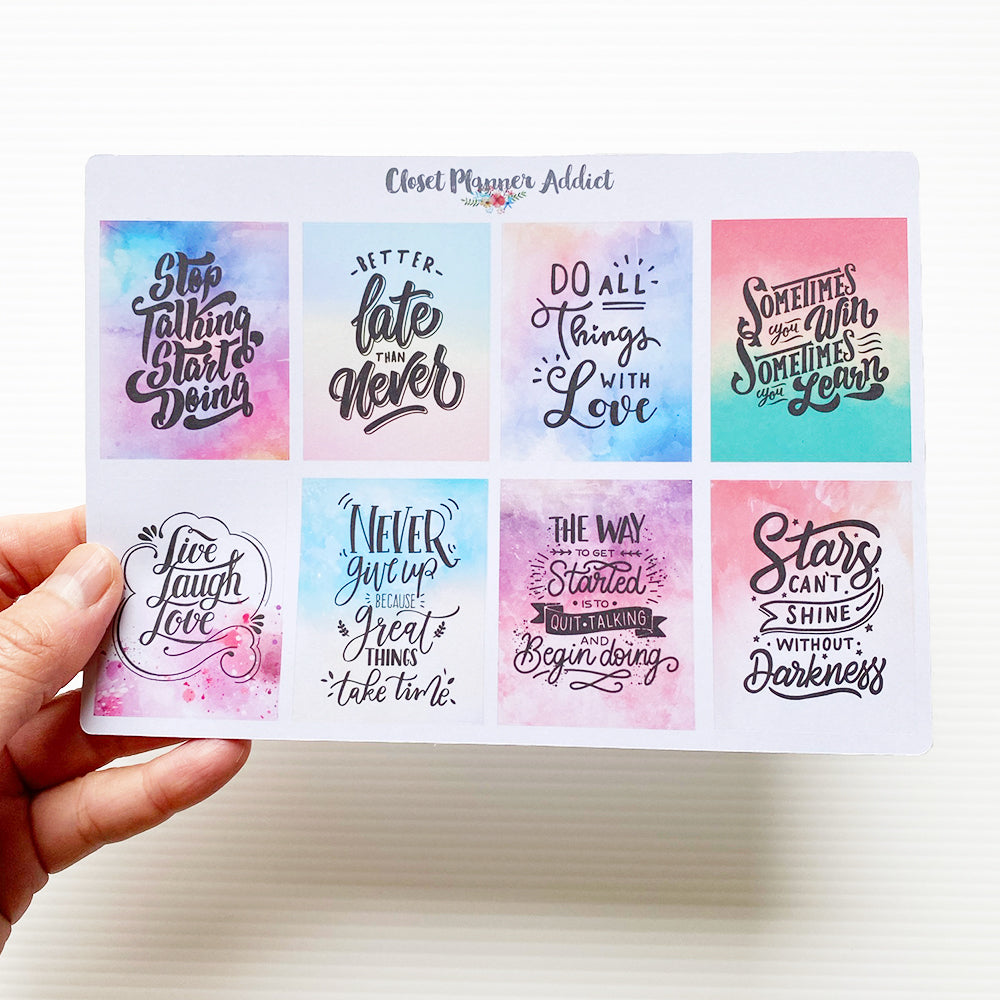 Closet Planner Addict
Stop
Talking
Start
Doing
-BETTER-
late
THAN
never
DO ALL
Things
WITH
Love
SOMETIMES
you Win
SOMETIMES
you Learn
Live
Laugh
Love
NEVER
give up
BECAUSE
great
THINGS
take time
THE WAY
TO GET
Started
IS TO
QUIT•TALKING
AND
Begin doing
Stars
CAN'T
SHINE
WITHOUT
Darkness